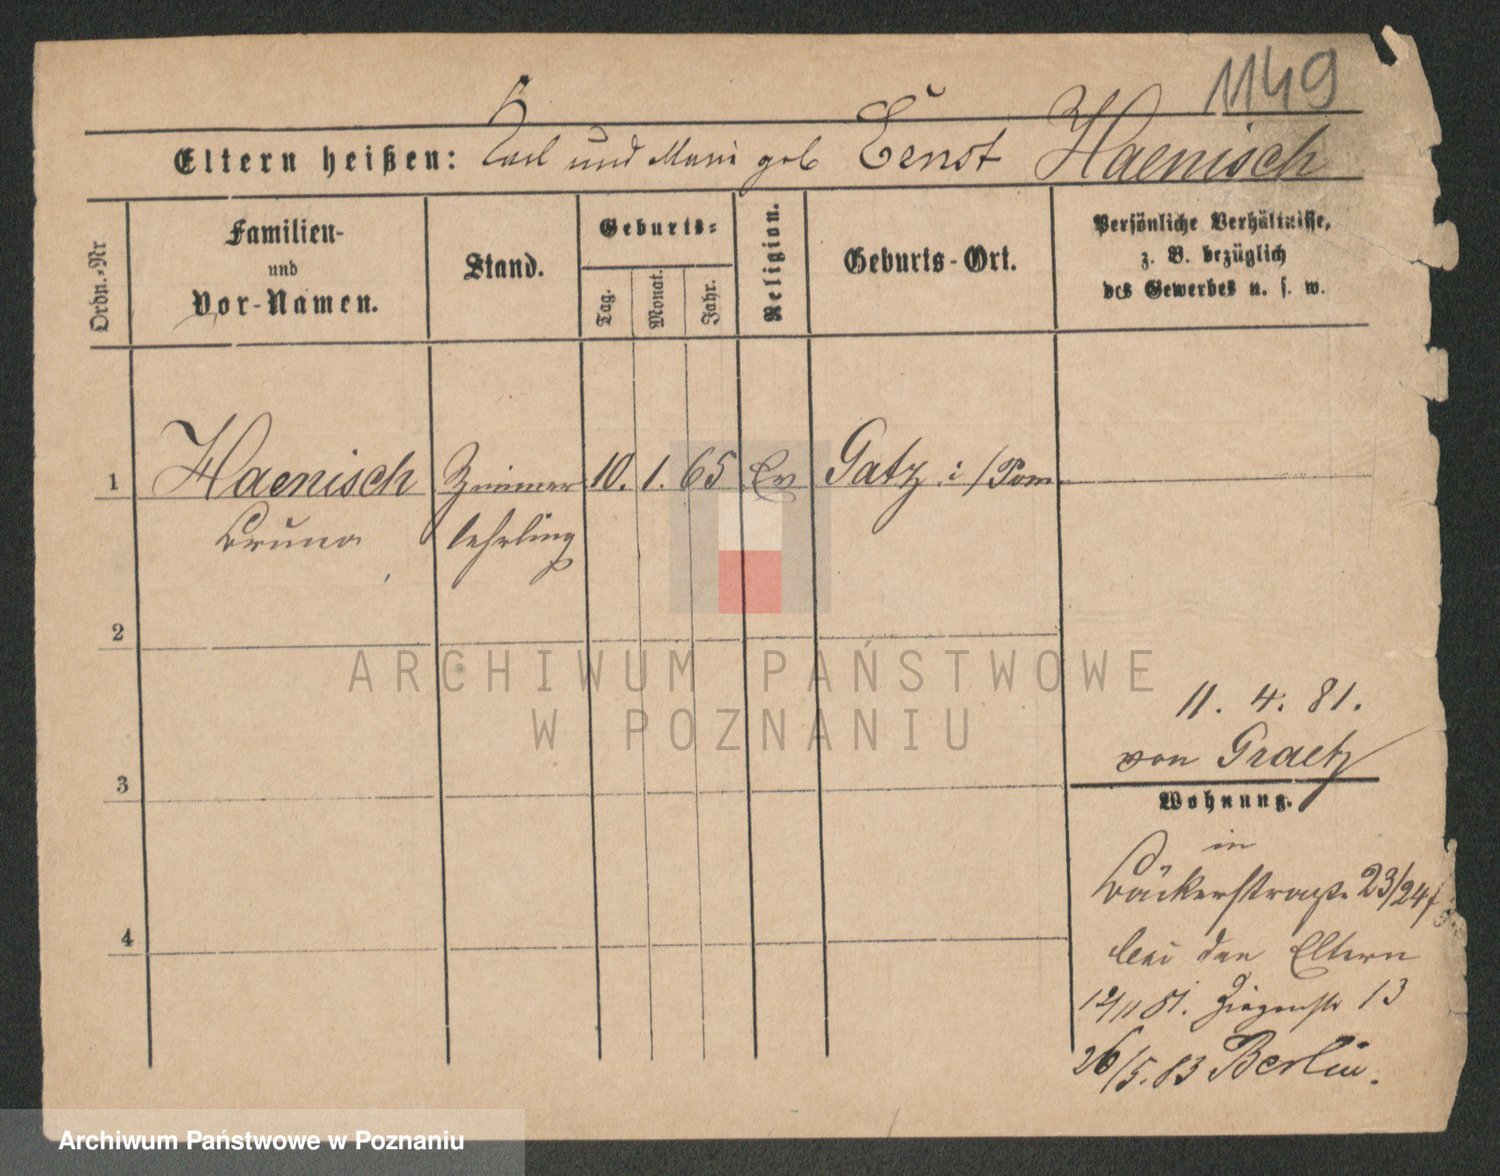 1149
Eltern heißen: Carl und Marie geb Ernst Haenisch
Ordn.-Nr
Familien-
und
Vor-Namen.
Stand.
Geburts-
Tag.
Monat.
Jahr.
Religion.
Geburts-Ort.
Persönliche Verhältnisse,
z. B. bezüglich
des Gewerbes u. s. w.
1 Haenisch Zimmer 10. 1. 65 Ev Gatz i/Pom
Bruno lehrling
2
3
4
11. 4. 81.
von Graetz
Wohnung.
in
Bäckerstraße 23/24
bei den Eltern
12/11 81. Ziegenstr 13
26/5.83 Berlin.
ARCHIWUM PAŃSTWOWE
W POZNANIU
Archiwum Państwowe w Poznaniu